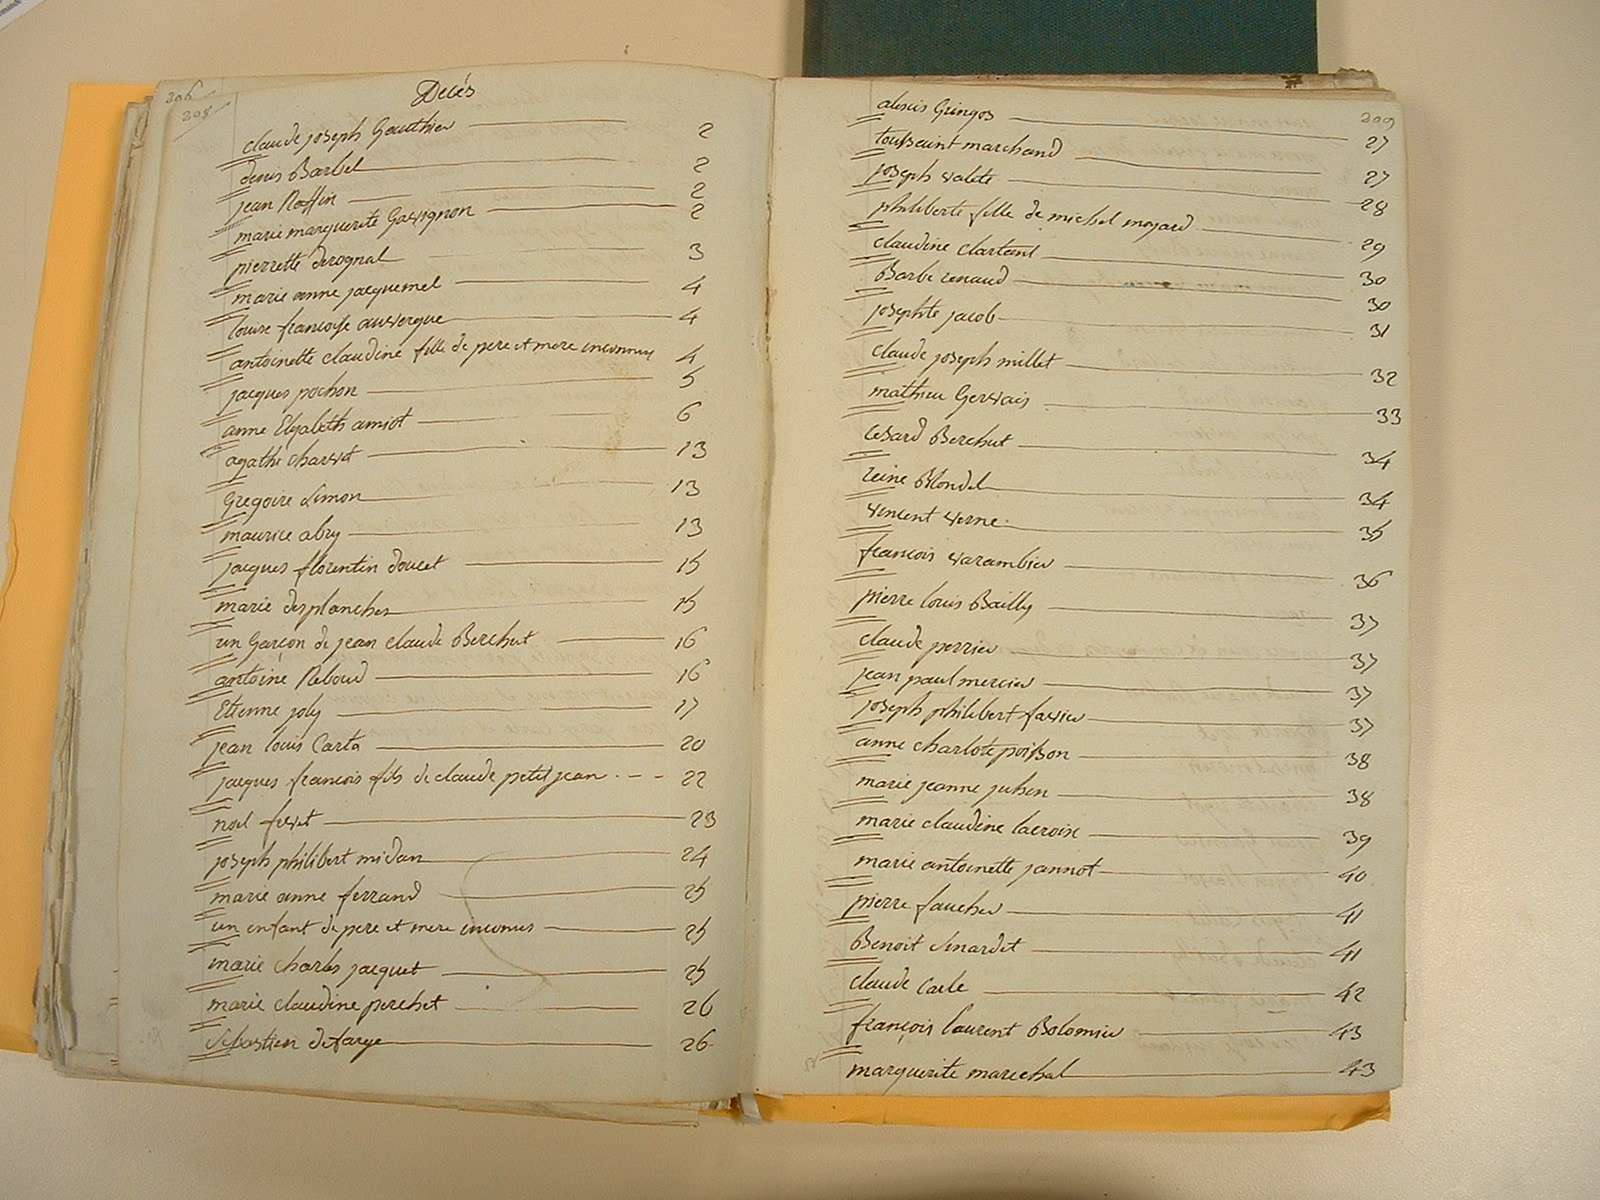 306
208
Decés
claude joseph Gauthier 2
denis Barbel 2
jean Roffin 2
marie marguerite Gavignon 2
pierrette derognal 3
marie anne jacquemel 4
louise francoise auvergne 4
antoinette claudine fille de pere et mere inconnus 4
jacques pochon 5
anne Elyabeth amiot 6
agathe charvet 13
Gregoire Simon 13
maurice abry 13
jacques florentin doucet 15
marie desplanches 15
un Garçon de jean claude Berchut 16
antoine Reboud 16
Etienne joly 17
jean louis Carta 20
jacques francois fils de claude petit jean 22
noel frevet 23
joseph philibert midan 24
marie anne ferrand 25
un enfant de pere et mere inconnus 25
marie charles jacquet 25
marie claudine perchet 26
Sebastien defarge 26
209
alexis Gringos 27
toussaint marchand 27
joseph valete 28
philiberte fille de michel moyard 29
claudine 30
Barbe renaud 30
josephte jacob 31
claude joseph millet 32
mathieu Gervais 33
Cesard Berchut 34
reine Blondel 34
vincent verne 35
francois varambier 36
pierre louis Bailly 37
claude perrier 37
jean paul mercier 37
joseph philibert favier 37
anne charlote poisson 38
marie jeanne juhen 38
marie claudine lacroix 39
marie antoinette jannot 40
pierre faucher 41
Benoit Senardet 41
claude Carle 42
françois laurent Bolomier 43
marguerite marechal 43